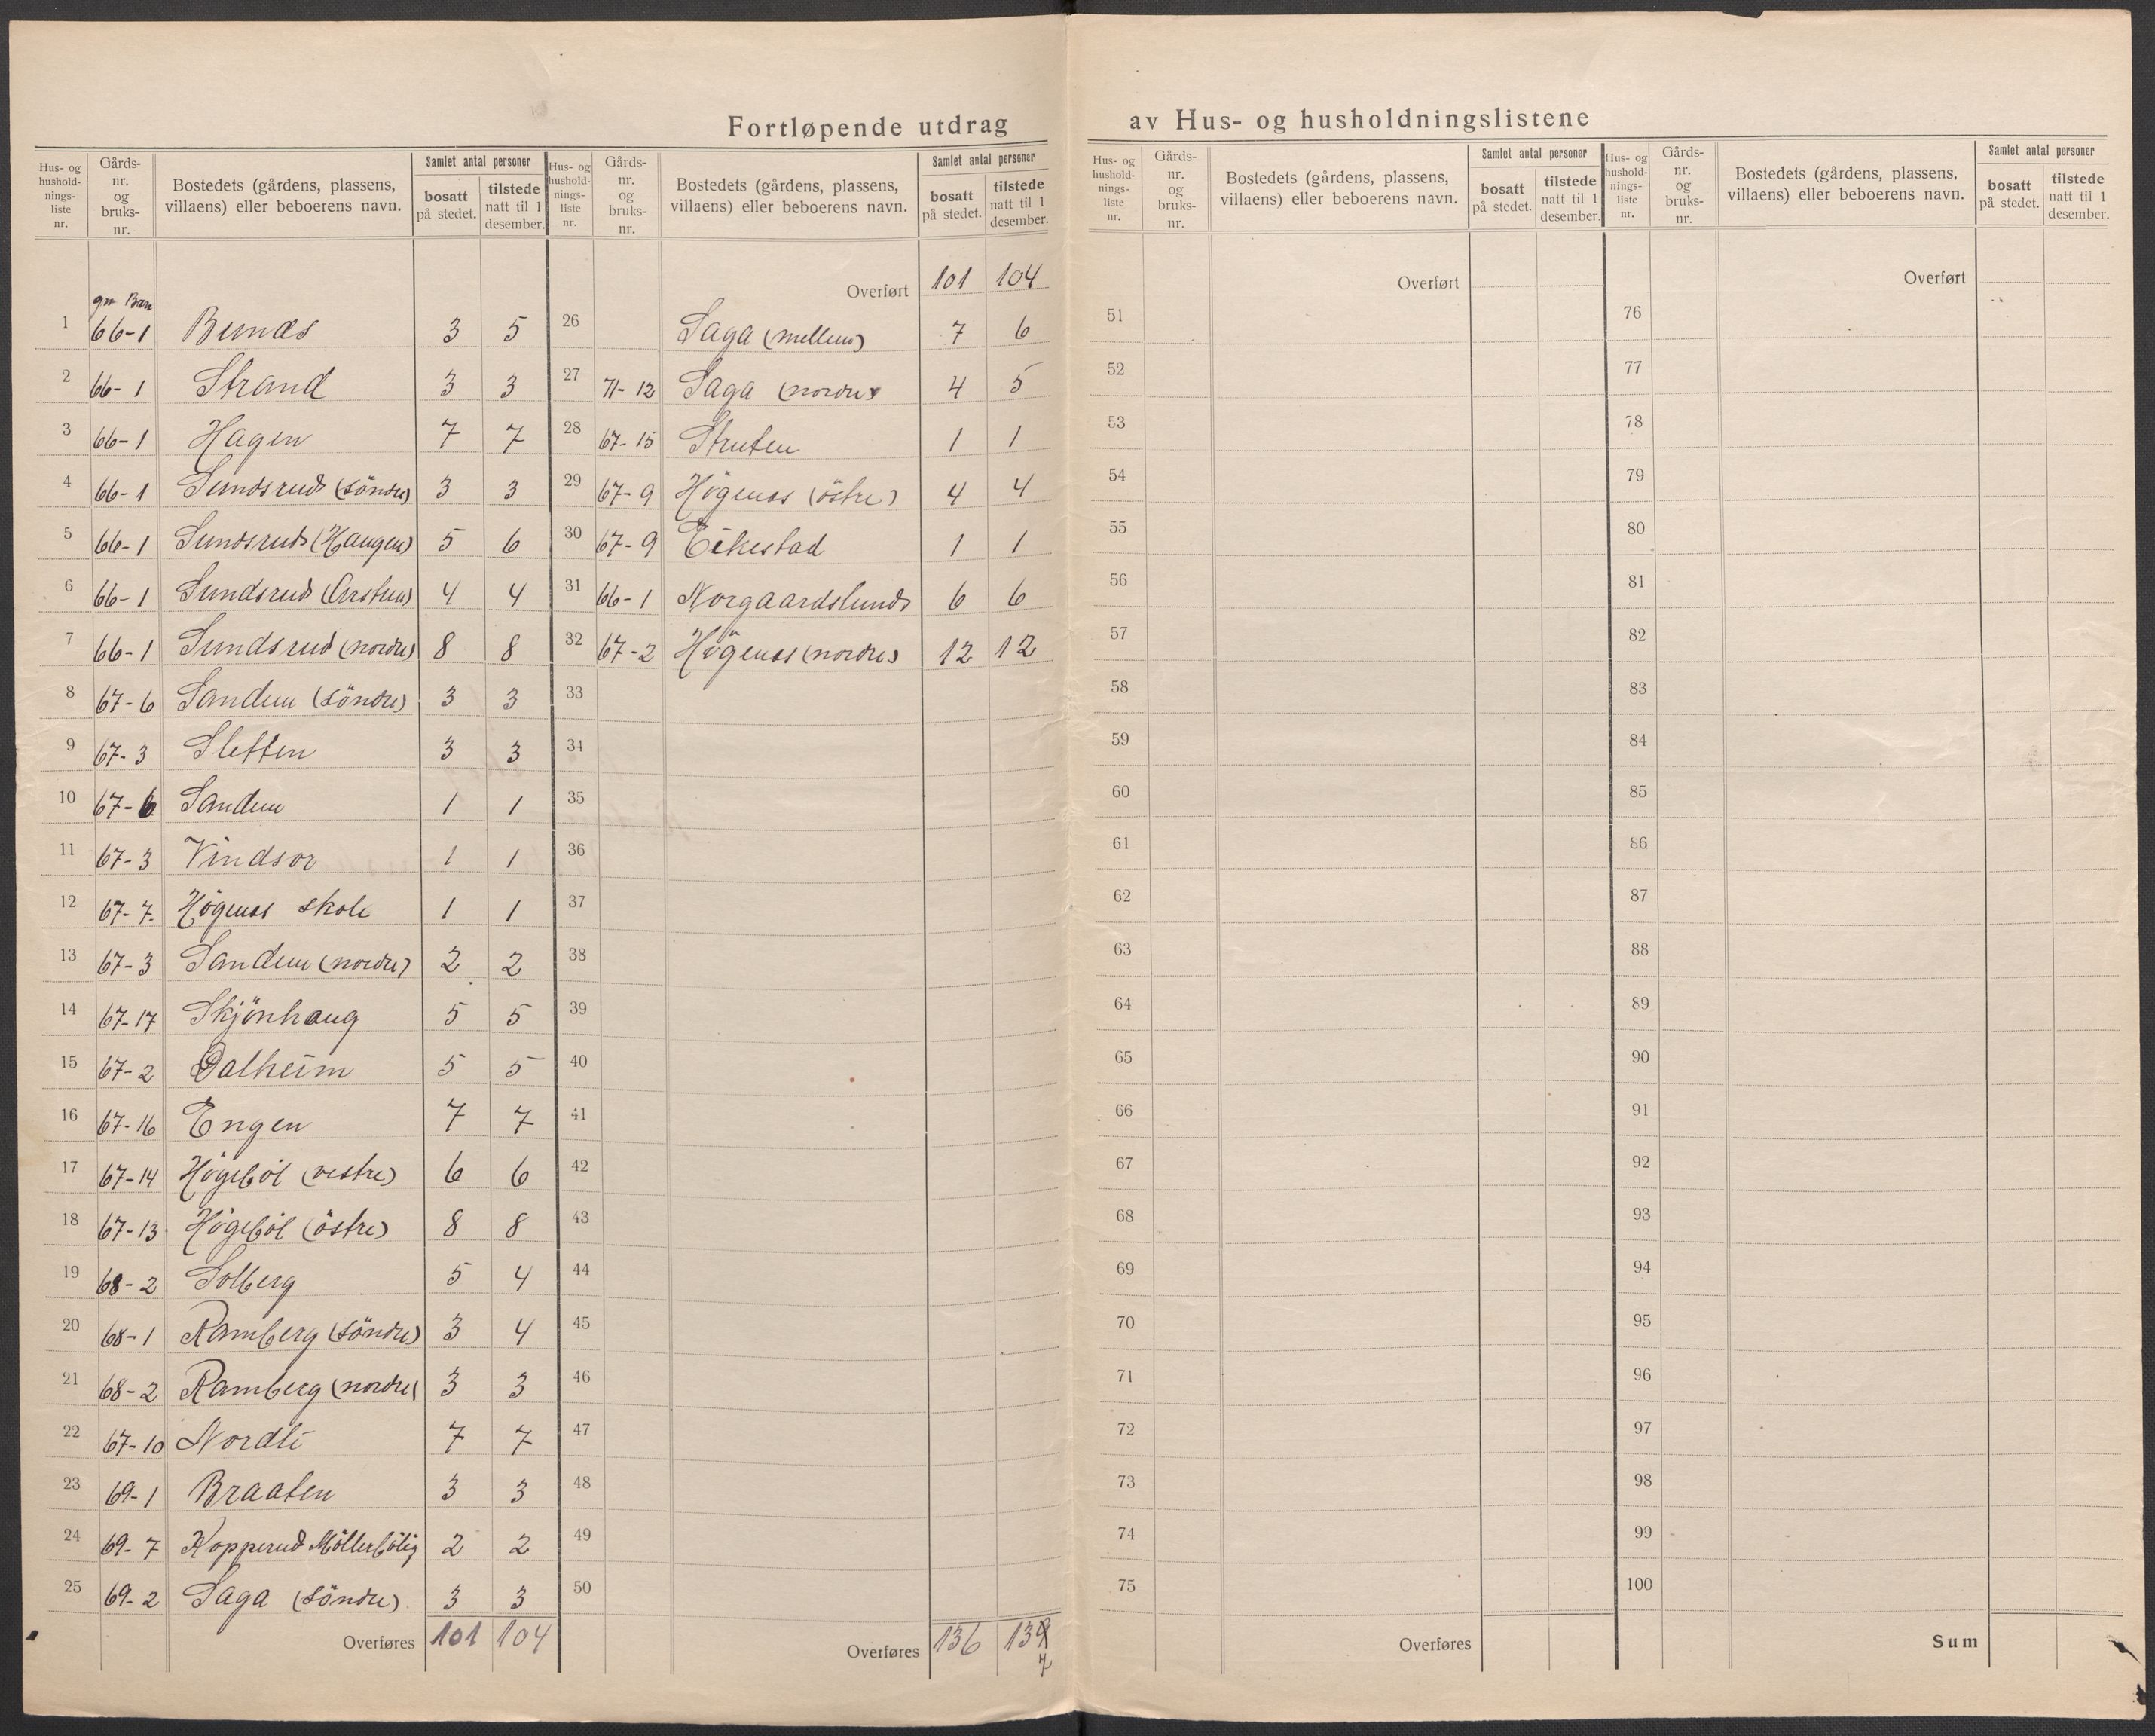 Fortløpende utdrag av Hus- og husholdningslistene
Hus- og hushold-nings-liste nr. | Gårds-nr. og bruks-nr. | Bostedets (gårdens, plassens, villaens) eller beboerens navn. | Samlet antal personer | bosatt på stedet. | tilstede natt til 1 desember.
gnr Bnr
1 66-1 Bunæs 3 5
2 66-1 Strand 3 3
3 66-1 Hagen 7 7
4 66-1 Sundsrud (söndre) 3 3
5 66-1 Sundsrud (Haugen) 5 6
6 66-1 Sundsrud 4 4
7 66-1 Sundsrud (nordre) 8 8
8 67-6 Sandum (söndre) 3 3
9 67-3 Sletten 3 3
10 67-6 Sandum 1 1
11 67-3 Vindsor 1 1
12 67-7. Högenæs skole 1 1
13 67-3 Sandum (nordre) 2 2
14 67-17 Skjönhaug 5 5
15 67-2 Dalheim 5 5
16 67-16 Engen 7 7
17 67-14 Högeböl (vestre) 6 6
18 67-13 Högeböl (östre) 8 8
19 68-2 Solberg 5 4
20 68-1 Ramberg (söndre) 3 4
21 68-2 Ramberg (nordre) 3 3
22 67-10 Nordli 7 7
23 69-1 Braaten 3 3
24 69-7 Kopperud Möllerbolig 2 2
25 69-2 Saga (söndre) 3 3
Overføres 101 104
Hus- og hushold-nings-liste nr. | Gårds-nr. og bruks-nr. | Bostedets (gårdens, plassens, villaens) eller beboerens navn. | Samlet antal personer | bosatt på stedet. | tilstede natt til 1 desember.
Overført 101 104
26 Saga (mellem) 7 6
27 71-12 Saga (nordre) 4 5
28 67-15 Struten 1 1
29 67-9 Högenæs (östre) 4 4
30 67-9 Eikestad 1 1
31 66-1 Norgaardslund 6 6
32 67-2 Högenæs (nordre) 12 12
33
34
35
36
37
38
39
40
41
42
43
44
45
46
47
48
49
50
Overføres 136 139
7
Hus- og hushold-nings-liste nr. | Gårds-nr. og bruks-nr. | Bostedets (gårdens, plassens, villaens) eller beboerens navn. | Samlet antal personer | bosatt på stedet. | tilstede natt til 1 desember.
Overført
51
52
53
54
55
56
57
58
59
60
61
62
63
64
65
66
67
68
69
70
71
72
73
74
75
Overføres
Hus- og hushold-nings-liste nr. | Gårds-nr. og bruks-nr. | Bostedets (gårdens, plassens, villaens) eller beboerens navn. | Samlet antal personer | bosatt på stedet. | tilstede natt til 1 desember.
Overført
76
77
78
79
80
81
82
83
84
85
86
87
88
89
90
91
92
93
94
95
96
97
98
99
100
Sum